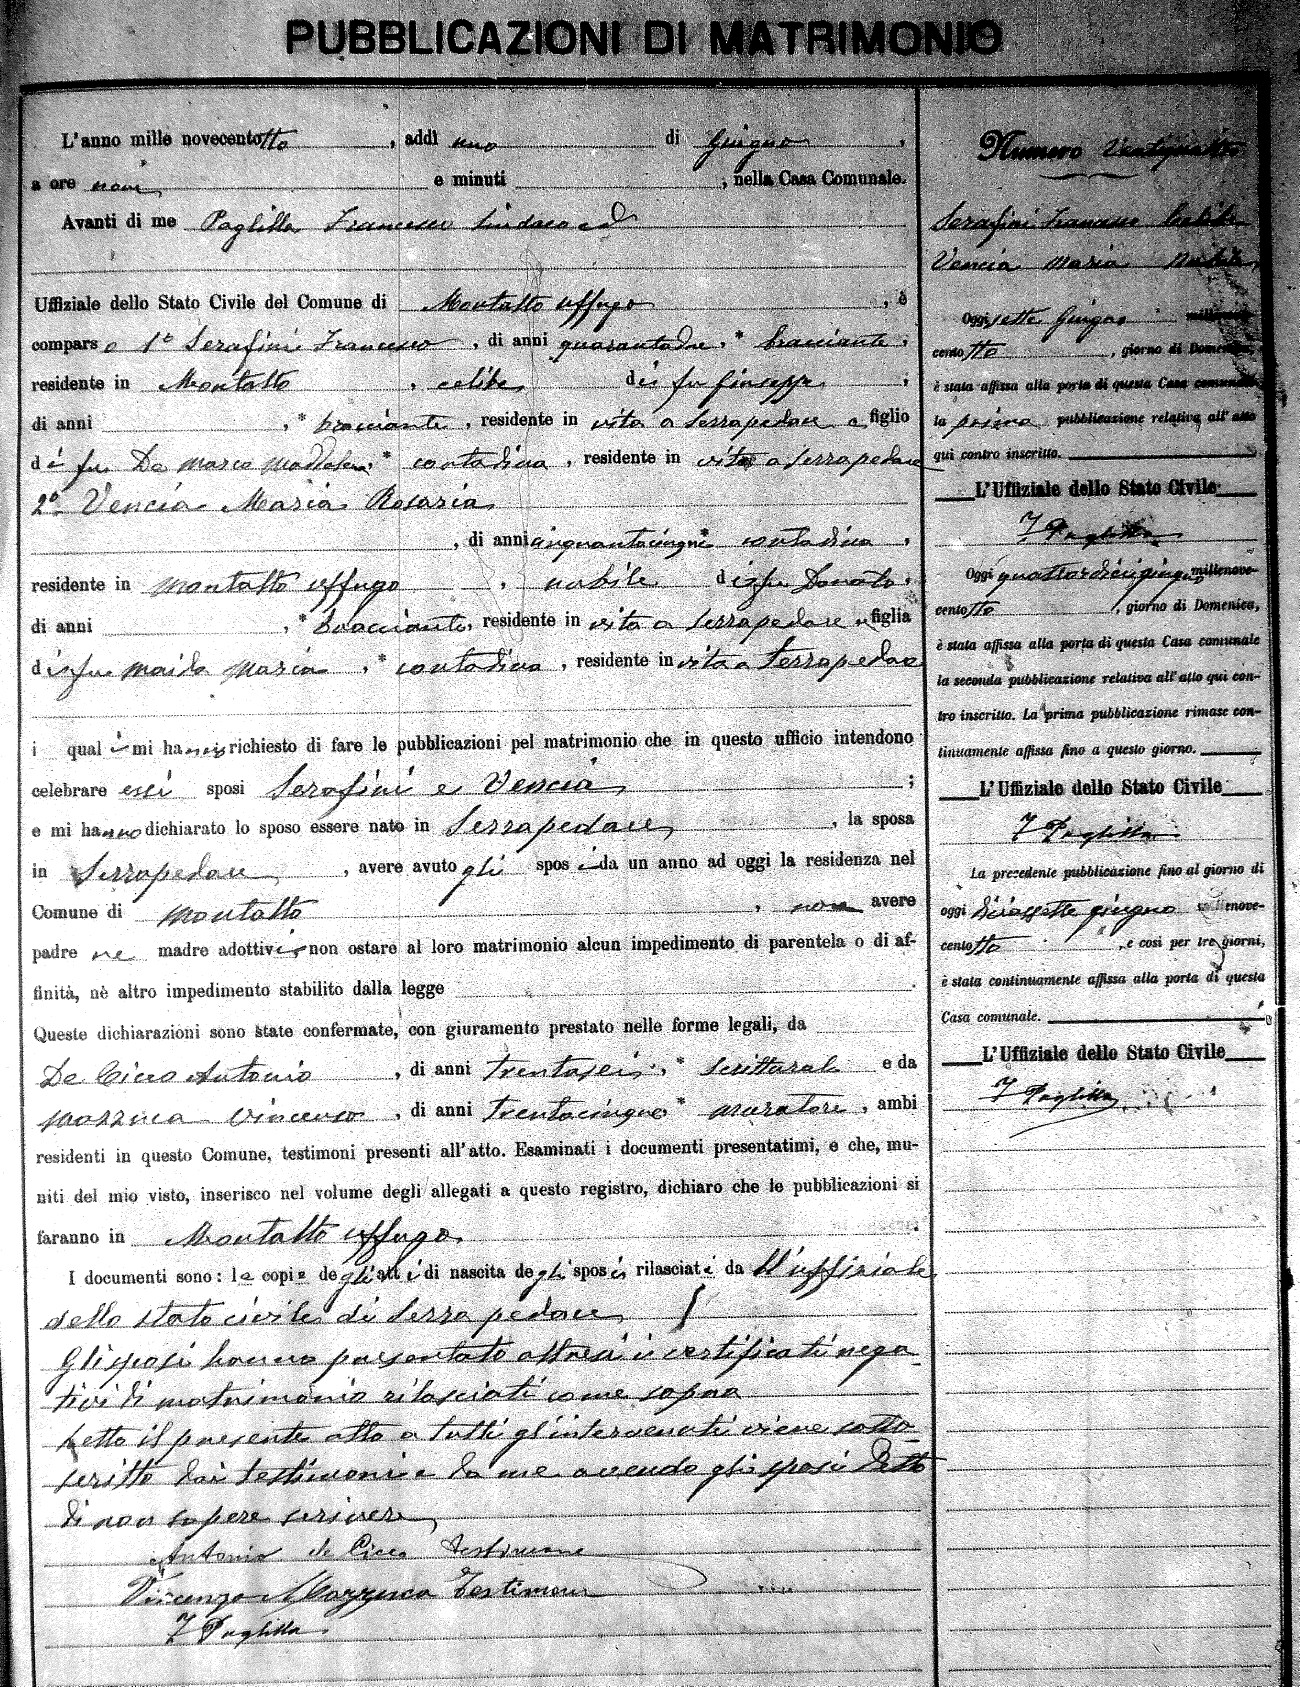 PUBBLICAZIONI DI MATRIMONIO
L'anno mille novecentotto, addì uno di Giugno,
a ore nove e minuti , nella Casa Comunale.
Avanti di me Paglilla Francesco Sindaco ed
Uffiziale dello Stato Civile del Comune di Montalto uffugo, è
comparso 1º Serafini Francesco, di anni quarantadue, * bracciante,
residente in Montalto, celibe di fu Giuseppe,
di anni , * bracciante, residente in vita a Serrapedace e figlio
di fu De Marco Maddalena, * contadina, residente in vita a Serrapedace
2º Vencia Maria Rosaria
, di anni cinquantacinque * contadina,
residente in Montalto uffugo, nubile di fu Donato,
di anni , * bracciante, residente in vita a Serrapedace e figlia
di fu Maida Maria, * contadina, residente in vita a Serrapedace
i quali mi hanno richiesto di fare le pubblicazioni pel matrimonio che in questo ufficio intendono
celebrare essi sposi Serafini e Vencia ;
e mi hanno dichiarato lo sposo essere nato in Serrapedace, la sposa
in Serrapedace, avere avuto gli sposi da un anno ad oggi la residenza nel
Comune di Montalto, non avere
padre ne madre adottivi, non ostare al loro matrimonio alcun impedimento di parentela o di af-
finità, nè altro impedimento stabilito dalla legge .
Queste dichiarazioni sono state confermate, con giuramento prestato nelle forme legali, da
De Cicco Antonio, di anni trentasei, * scritturale e da
Mazzuca Vincenzo, di anni trentacinque * muratore, ambi
residenti in questo Comune, testimoni presenti all'atto. Esaminati i documenti presentatimi, e che, mu-
niti del mio visto, inserisco nel volume degli allegati a questo registro, dichiaro che le pubblicazioni si
faranno in Montalto uffugo.
I documenti sono: le copie degli atti di nascita degli sposi rilasciate da ll'uffiziale
dello stato civile di Serra pedace
Gli sposi hanno presentato altresì i certificati nega-
tivi di matrimonio rilasciati come sopra
Letto il presente atto a tutti gl'intervenuti viene sotto-
scritto dai testimoni e da me avendo gli sposi detto
di non sapere scrivere
Antonio de Cicco testimone
Vincenzo Mazzuca Testimone
F Paglilla
Numero Ventiquattro
Serafini Francesco Celibe
Vencia Maria Nubile
Oggi sette Giugno millenove-
centotto, giorno di Domenica,
è stata affissa alla porta di questa Casa comunale
la prima pubblicazione relativa all'atto
qui contro inscritto.
L'Uffiziale dello Stato Civile
F Paglilla
Oggi quattordici giugno millenove-
centotto, giorno di Domenica,
è stata affissa alla porta di questa Casa comunale
la seconda pubblicazione relativa all'atto qui con-
tro inscritto. La prima pubblicazione rimase con-
tinuamente affissa fino a questo giorno.
L'Uffiziale dello Stato Civile
F Paglilla
La precedente pubblicazione fino al giorno di
oggi diciassette giugno millenove-
centotto, e così per tre giorni,
è stata continuamente affissa alla porta di questa
Casa comunale.
L'Uffiziale dello Stato Civile
F Paglilla